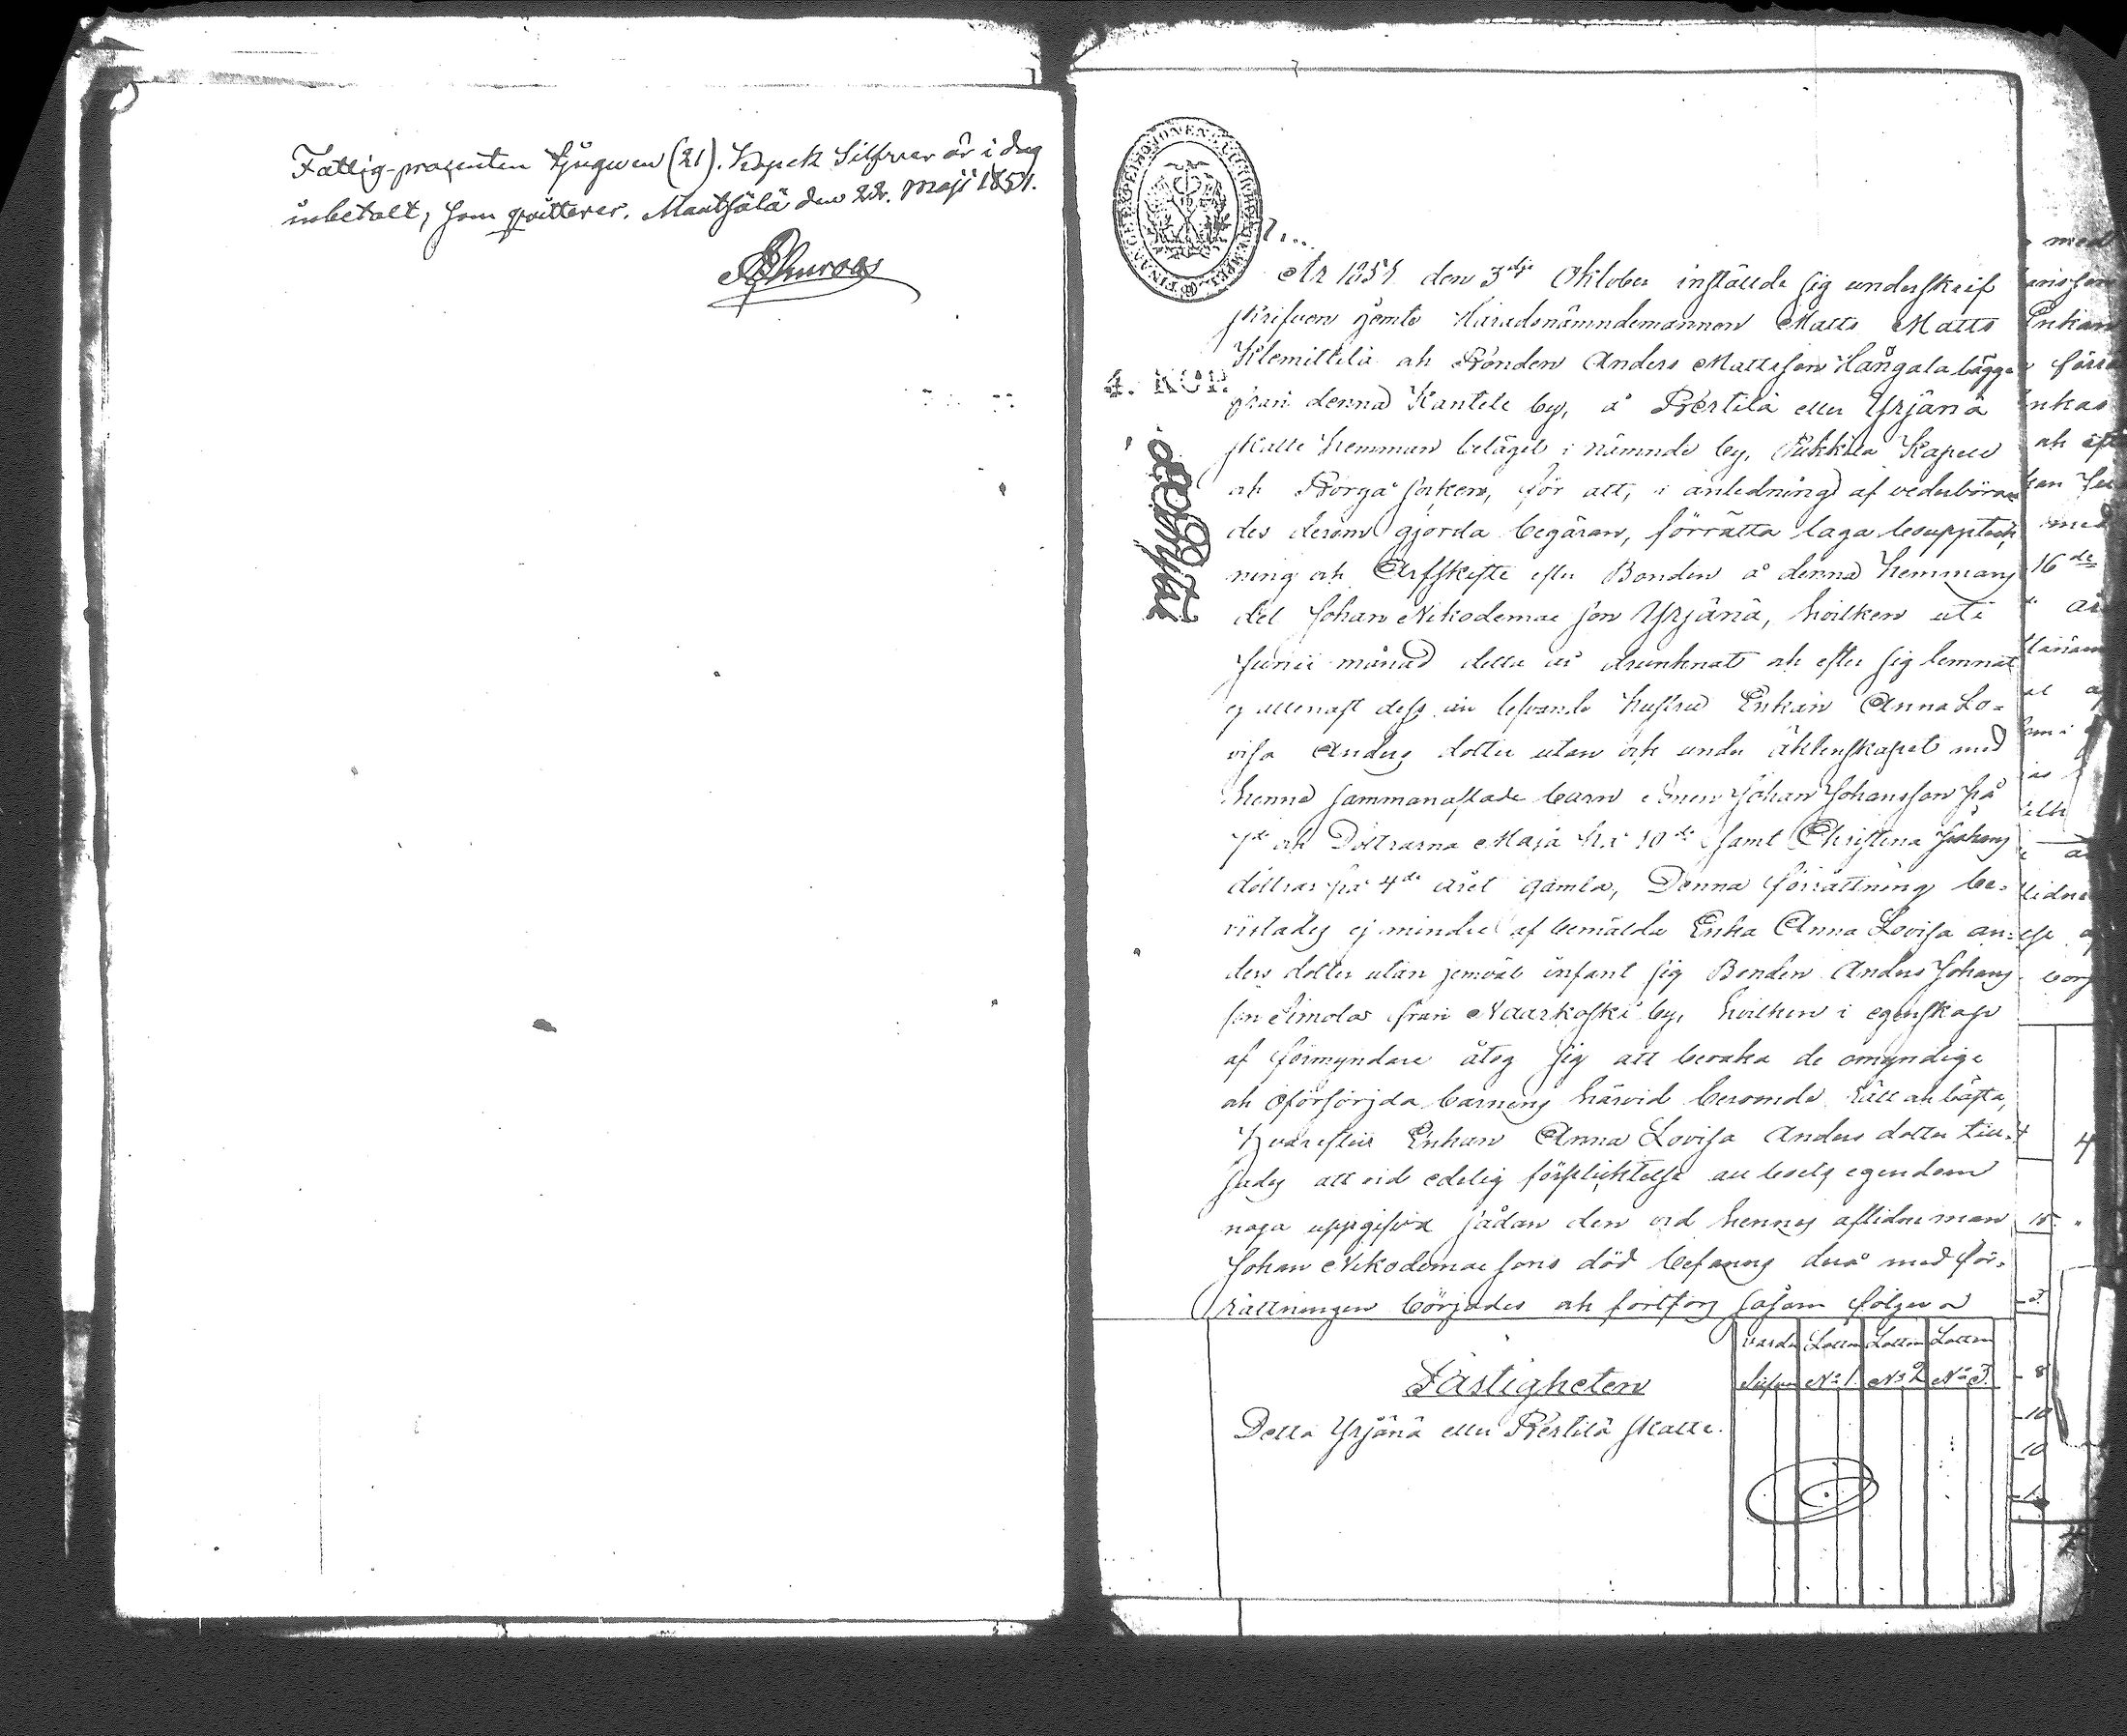 Fattig-procenten tjuguen (21). Kopek Silfver är i dag
inbetalt, som qvitterar. Mäntsälä den 22. Maji 1851.
År 1851 den 3dje Oktober inställde sig underskrif
skrifven jemte Häradsnämndemannen Matts Matts
Klemittilä och Bonden Anders Mattsson Hångala bägge
4. KOP.
från denna Kantele by, å Pertilä eller Yrjänä
skatte hemman belägit i nämnde by, Pukkila Kapell
och Borgå socken, för att, i anledning af vederböran
des derom gjorda begäran, förrätta laga bouppteck
ning och Arfskifte efter Bonden å denna hemmans
del Johan Nikodemus son Yrjänä, hvilken uti
Junii månad detta år drunknat och efter sig lemnat
ej allenast dess än lefvande hustru Enkan Anna Lo-
visa Anders dotter utan och under äktenskapet med
henne sammanaflade barn Sonen Johan Johansson på
7de och Döttrarna Maja på 10de samt Christina Johans
döttrar på 4de året gamla, Denna förrättning be-
vistades ej mindre af bemälda Enka Anna Lovisa An-
ders dotter utan jemväl infant sig Bonden Anders Johans
son Simola från Naarkoski by, hvilken i egenskap
af förmyndare åtog sig att bevaka de omyndige
och oförsörjda barnens härvid beroende rätt och bästa,
Hvarefter Enkan Anna Lovisa Anders dotter till-
sades att vid edelig förpliktelse all boets egendom
noga uppgifva sådan den vid hennes aflidne man
Johan Nikodemus sons död befanns derå med för-
rättningen börjades och fortfors såsom följer
Värde Lotten Lotten Lotten
Fastigheten
Silfver No 1. No 2 No 3.
Detta Yrjänä eller Pertilä skatte.
med
Enkan
och
med
16de
4
10
3
8
10
10